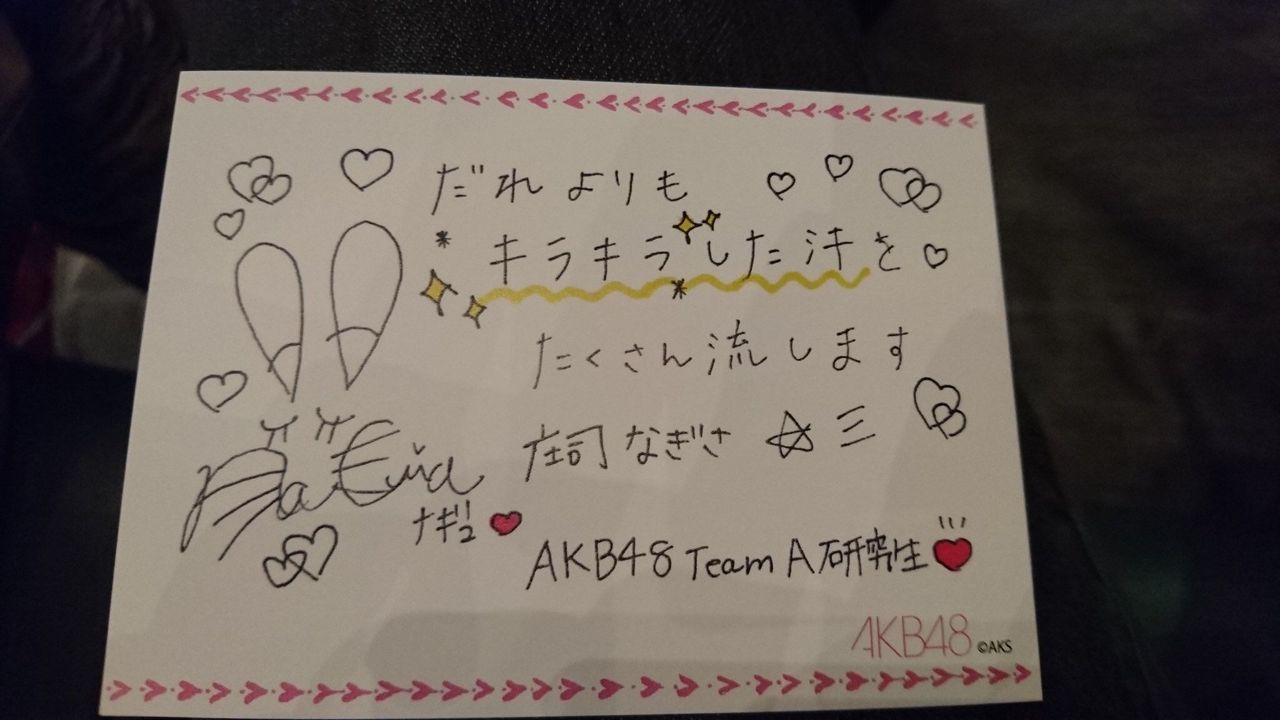 だれよりも
キラキラした汗を
たくさん流します
庄司なぎさ☆三
ナギュ
AKB48 Team A 研究生
AKB48 ©AKS